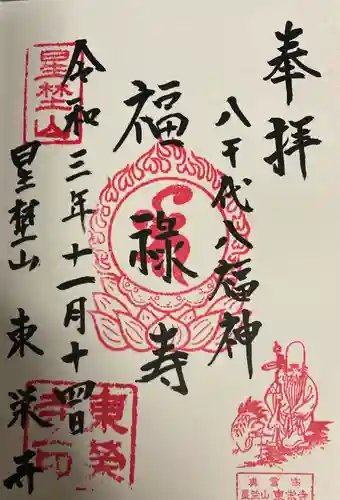 奉拝
八千代八福神
福禄寿
令和三年十一月十四日
星埜山 東栄寺
星埜山
真言宗
星埜山 東栄寺